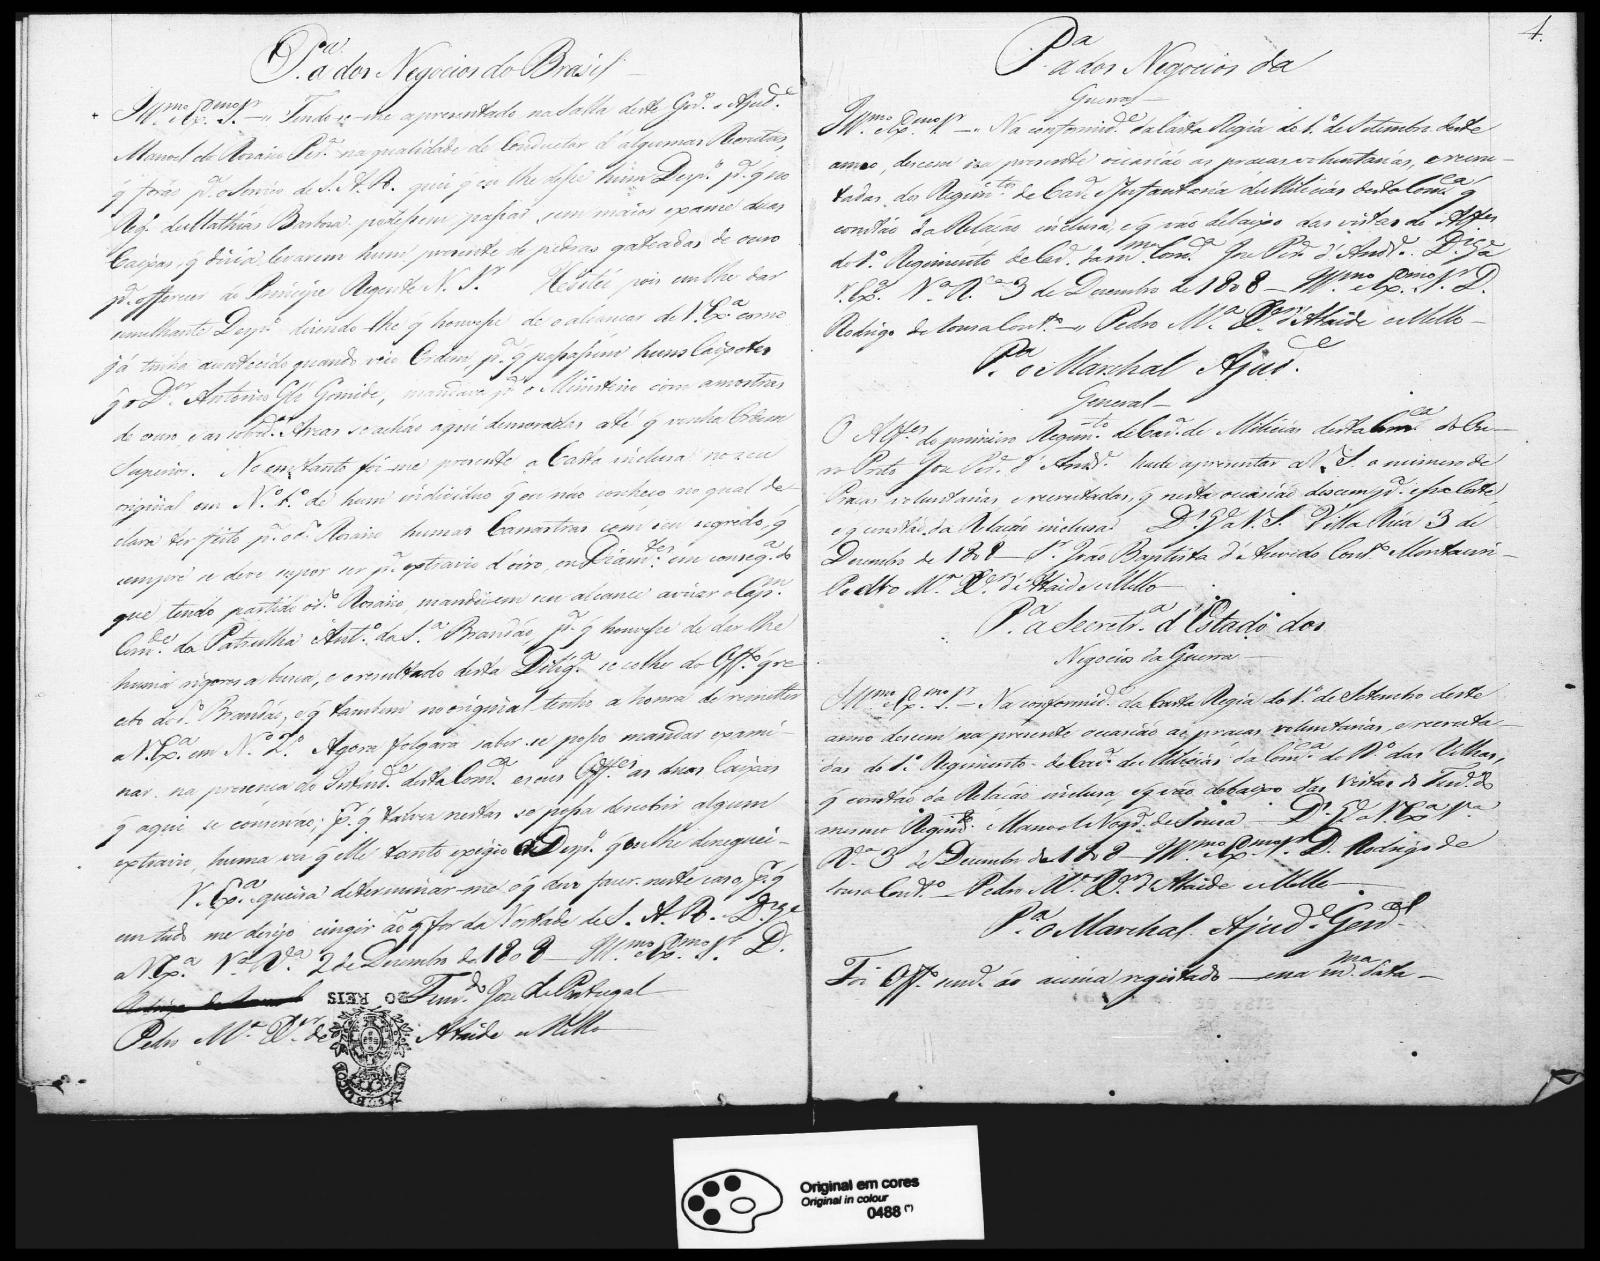 P.ª a dos Negocios do Brasil
Ill.mo e Ex.mo S.r — Tendo-se-me apresentado na Salla deste Gov.º o Ajud.e
Manoel do Rosario Per.ª na qualidade de Conductor d'algumas Recrutas,
q̃ forão p.ª o Serviço de S. A. R. quiz q̃ eu lhe desse hum Desp.º p.ª q̃ no
Reg.º de Mathias Barbosa podessem passar sem maior exame duas
Caixas, q̃ dizia levarem hum prezente de pedras gateadas de ouro
p.ª offerecer ao Principe Regente N. Sr. Hesitei pois em lhe dar
semelhante Desp.º dizendo-lhe q̃ houvesse de o alcançar de V. Ex.ª como
já tinha acontecido quando veio Ordem p.ª q̃ passassem huns Caixotes
q̃ o D.r Antonio Glz Gomide, mandava p.ª o Ministerio com amostras
de ouro e as sobred.as Arcas se achão aqui demoradas até q̃ venha Ordem
Superior. No emtanto foi-me prezente a Carta incluza no seu
original em N.º 1.º de hum individuo q̃ eu não conheço no qual de-
clara ter feito p.ª o d.º Rosario humas Canastras com seu segredo, q̃
sempre se deve suppor ser p.ª extravio d'oiro, ou Diam.tes em conseq.ª do
que tendo partido o d.º Rosario, mandei em seu alcance avizar o Cap.m
Com.de da Patrulha Ant.º da S.ª Brandão, p.ª q̃ houvesse de dar lhe
huma rigorosa busca, e o resultado desta Dilig.ª se colhe do Off.º q̃ re-
cebi do d.º Brandão, e q̃ tambem no original tenho a honra de remetter
a V. Ex.ª em N.º 2.º Agora folgara saber se posso mandar exami-
nar na presença do Intend.e desta Com.ca e seus Off.es as duas Caixas
q̃ aqui se conservão; p.ª q̃ talvez nestas se possa descobrir algum
extravio, huma vez q̃ elle tanto exegio o Desp.º q̃ eu lhe deneguei —
V. Ex.ª queira determinar-me o q̃ devo fazer neste caso, p.ª q̃
em tudo me dezejo cingir ao q̃ for da Vontade de S. A. R. — D.s g.e
a V. Ex.ª V.ª R.ª 2 de Dezembro de 1808 — Ill.mo e Ex.mo S.r D.
Fern.do Joze de Portugal
Pedro M.ª X.er de Ataide e Mello
P.ª a dos Negocios da
Guerra —
Ill.mo e Ex.mo S.r — Na conformid.e da Carta Regia do 1.º de Setembro deste
anno, descem na prezente occazião as praças voluntarias, e recru-
tadas dos Regim.tos de Cav.ª e Infantaria de Milicias desta Com.ca q̃
constão da Relação incluza, e q̃ vão debaixo das vistas do Alferes
do 1.º Regimento de Cav.ª da m.ma Com.ca Joze Per.ª d'Andr.e. D.s g.e a
V. Ex.ª V.ª R.ca 3 de Dezembro de 1808 — Ill.mo e Ex.mo S.r D.
Rodrigo de Souza Cout.º — Pedro M.ª X.er d'Ataide e Mello —
P.ª o Marchal Ajud.e
General —
O Alf.es do primeiro Regim.to de Cav.ª de Milicias desta Com.ca do Ou-
ro Preto Joze Per.ª d'Andr.e vai apresentar a V. S. o numero de
Praças voluntarias e recrutadas, q̃ nesta occazião descem p.ª essa Corte,
e q̃ constão da Relação incluza D.s g.e a V. S. Villa Rica 3 de
Dezembro de 1808 — Sr. João Baptista d'Azevedo Cout.º Montauri —
Pedro M.ª X.er d'Ataide e Mello —
P.ª a Secretr.ª d'Estado dos
Negocios da Guerra —
Ill.mo e Ex.mo S.r — Na conformid.e da Carta Regia do 1.º de Setembro deste
anno descem na prezente occazião as praças voluntarias, e recruta-
das do 1.º Regimento de Cav.ª de Milicias da Com.ca do R.º das Velhas,
q̃ constão da Relação incluza, e q̃ vão debaixo das vistas do Ten.e do
mesmo Regim.to Manoel Nog.ª de Souza — D.s g.e a V. Ex.ª V.ª
R.ª 3 de Dezembro de 1808 — Ill.mo e Ex.mo S.r D. Rodrigo de
Souza Cout.º — Pedro M.ª X.er d'Ataide e Mello —
P.ª o Marchal Ajud.e Gen.al
Foi Off.º sem.e ao acima registado — e na m.ma data —
4.
Original em cores
Original in colour
0488 (*)